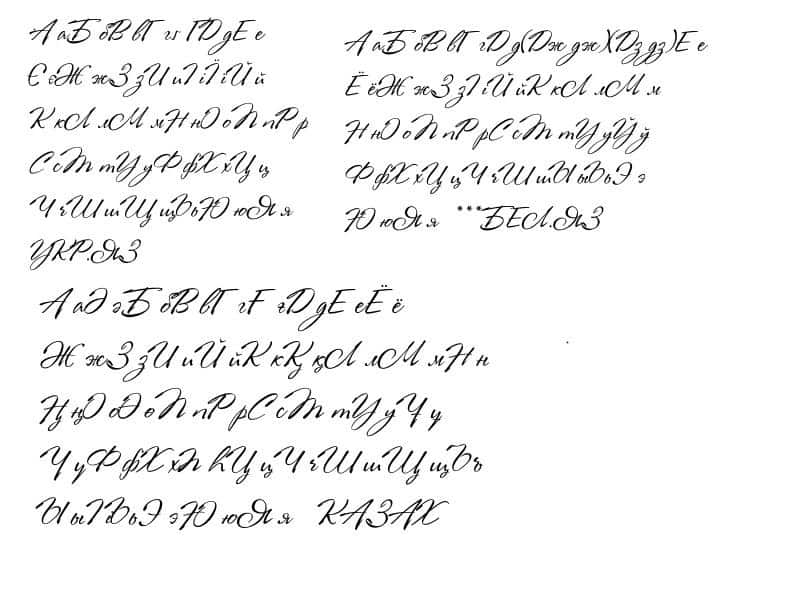 А аБ бВ вГ гґ ҐД дЕ е
Є єЖ жЗ зИ иІ іЇ їЙ й
К кЛ лМ мН нО оП пР р
С сТ тУ уФ фХ хЦ ц
Ч чШ шЩ щЬ ьЮ юЯ я
УКР.ЯЗ
А аБ бВ вГ гД д(Дж дж)(Дз дз)Е е
Ё ёЖ жЗ зІ іЙ йК кЛ лМ м
Н нО оП пР рС сТ тУ уЎ ў
Ф фХ хЦ цЧ чШ шЫ ыЬ ьЭ э
Ю юЯ я ***БЕЛ.ЯЗ
А аӘ әБ бВ вГ гҒ ғД дЕ еЁ ё
Ж жЗ зИ иЙ йК кҚ қЛ лМ мН н
Ң ңО оӨ өП пР рС сТ тУ уҰ ұ
Ү үФ фХ хҺ һЦ цЧ чШ шЩ щЪ ъ
Ы ыІ іЬ ьЭ эЮ юЯ я КАЗАХ